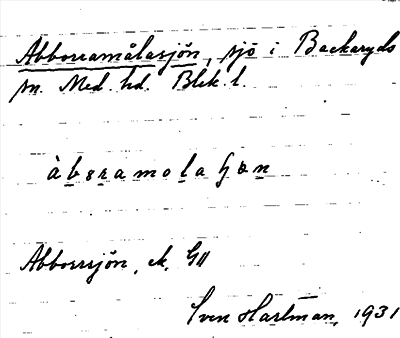 Abborramålasjön, sjö i Backaryds
sn. Med. hd. Blek. l.
àbɞramolaɧøn
Abborrsjön, ek. G11
Sven Hartman, 1931